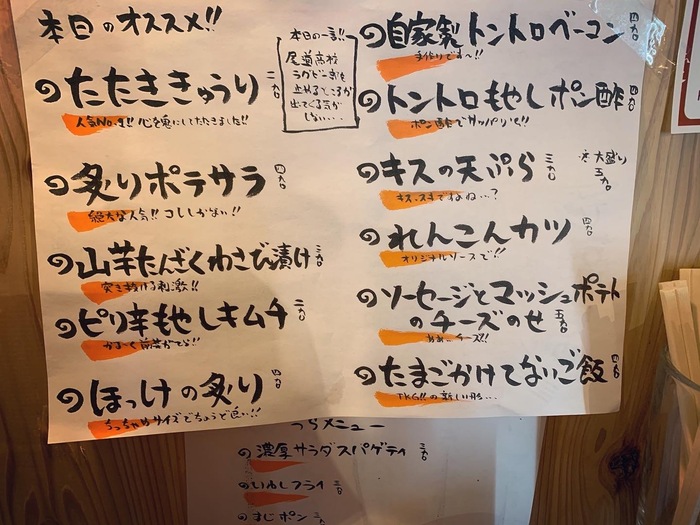 本日のオススメ!!
たたききゅうり 二九〇
人気No.1!! 心を鬼にしてたたきました!!
炙りポテサラ 四九〇
絶大な人気!! コレしかない!!
山芋たんざくわさび漬け 三九〇
突き抜ける刺激!!
ピリ辛もやしキムチ 二九〇
かる〜く前菜がてら!!
ほっけの炙り 四九〇
ちっちゃめサイズでちょうど良い!!
本日の一言!!
尾道高校
ラグビー部を
止めるところが
出てくる気が
しない...
自家製トントロベーコン 四九〇
手作りです〜!!
トントロもやしポン酢 四九〇
ポン酢でサッパリと!!
キスの天ぷら 三九〇
大盛り 五九〇
キス、スキでなね...?
れんこんカツ 四九〇
オリジナルソースで!!
ソーセージとマッシュポテト
のチーズのせ 五九〇
ああ、チーズ!!
たまごかけてないご飯 四九〇
TKG!!の新しい形...
メニュー
濃厚サラダスパゲティ 三九〇
いわしフライ 三九〇
すじポン